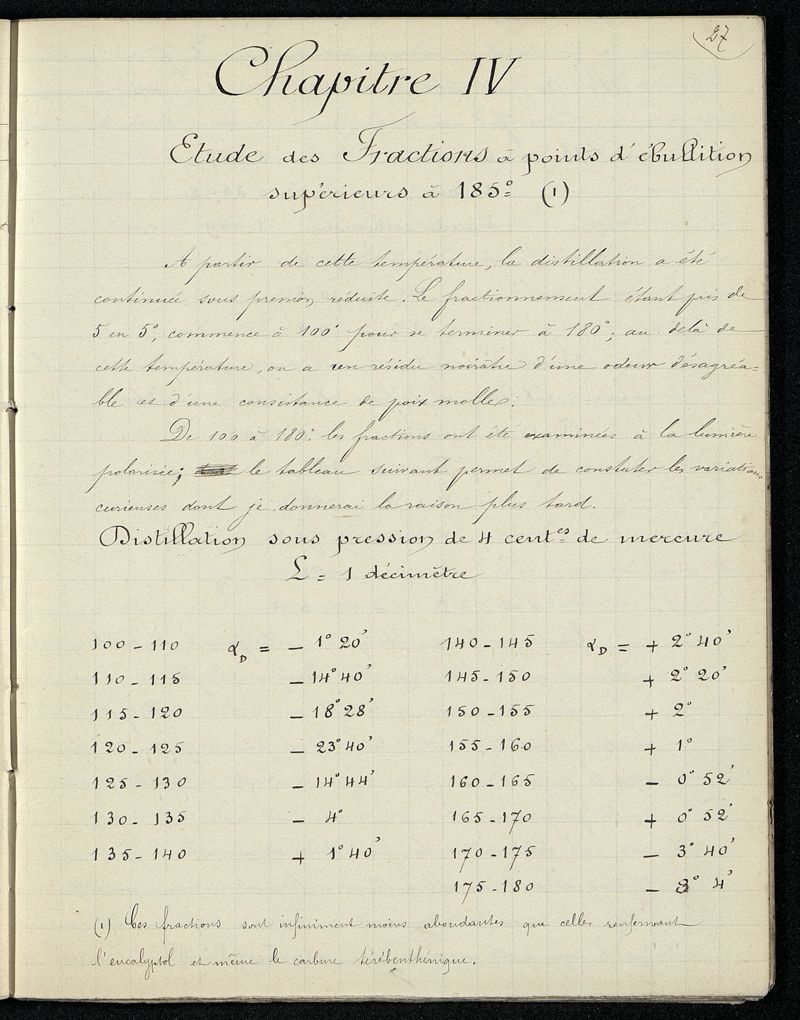 27
Chapitre IV
Etude des Fractions à points d'ébullition
supérieurs à 185° (1)
A partir de cette température, la distillation a été
continuée sous pression réduite. Le fractionnement étant pris de
5 en 5°, commence à 100° pour se terminer à 180°; au delà de
cette température, on a un résidu noirâtre d'une odeur désagréa-
ble et d'une consistance de poix molle.
De 100 à 180° les fractions ont été examinées à la lumière
polarisée; le tableau suivant permet de constater les variations
curieuses dont je donnerai la raison plus tard.
Distillation sous pression de 4 cent.es de mercure
L = 1 décimètre
100 - 110 αD = - 1° 20' 140 - 145 αD = + 2° 40'
110 - 115 - 14° 40' 145 - 150 + 2° 20'
115 - 120 - 18° 28' 150 - 155 + 2°
120 - 125 - 23° 40' 155 - 160 + 1°
125 - 130 - 14° 44' 160 - 165 - 0° 52'
130 - 135 - 4° 165 - 170 + 0° 52'
135 - 140 + 1° 40' 170 - 175 - 3° 40'
175 - 180 - 3° 4'
(1) Ces fractions sont infiniment moins abondantes que celles renfermant
l'eucalyptol et même le carbure térébenthénique.